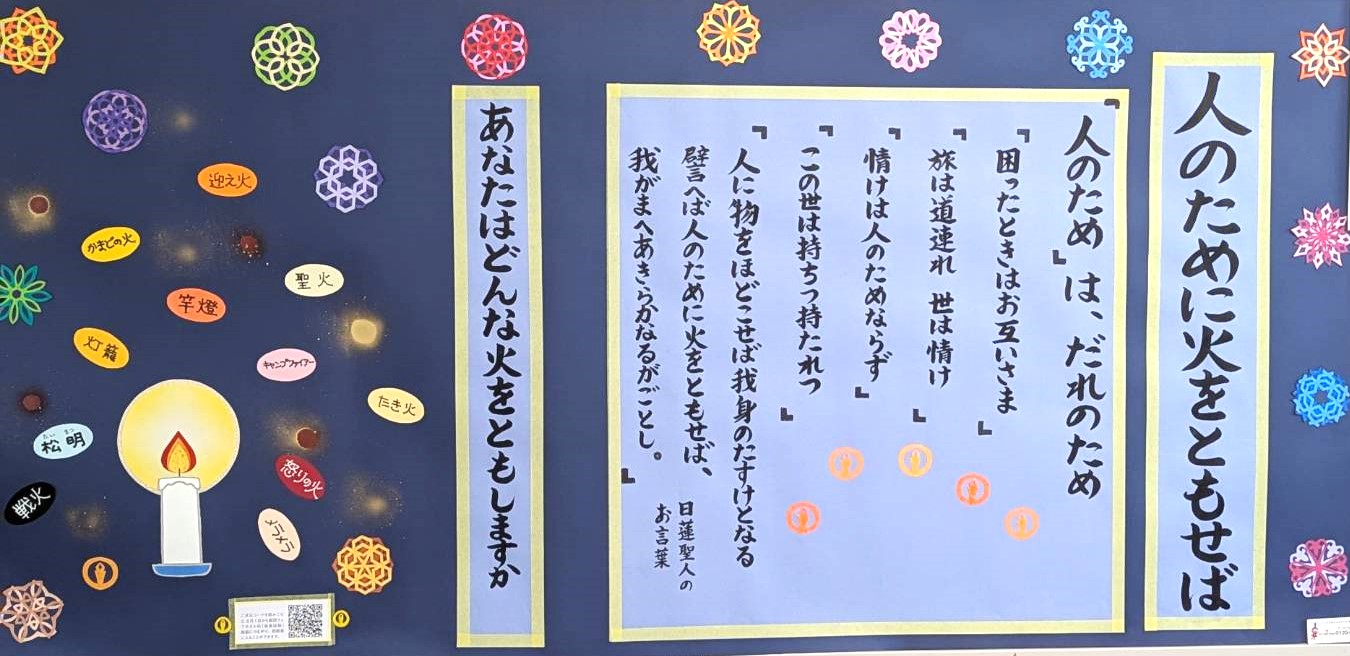 人のために火をともせば
「人のため」は、だれのため
「困ったときはお互いさま」
「旅は道連れ 世は情け」
「情けは人のためならず」
「この世は持ちつ持たれつ」
「人に物をほどこせば我身のたすけとなる
譬へば人のために火をともせば、
我がまへあきらかなるがごとし。」
日蓮聖人の
お言葉
あなたはどんな火をともしますか
迎え火
かまどの火
聖火
竿燈
灯籠
キャンプファイアー
たき火
たい まつ
松明
怒りの火
戦火
メラメラ